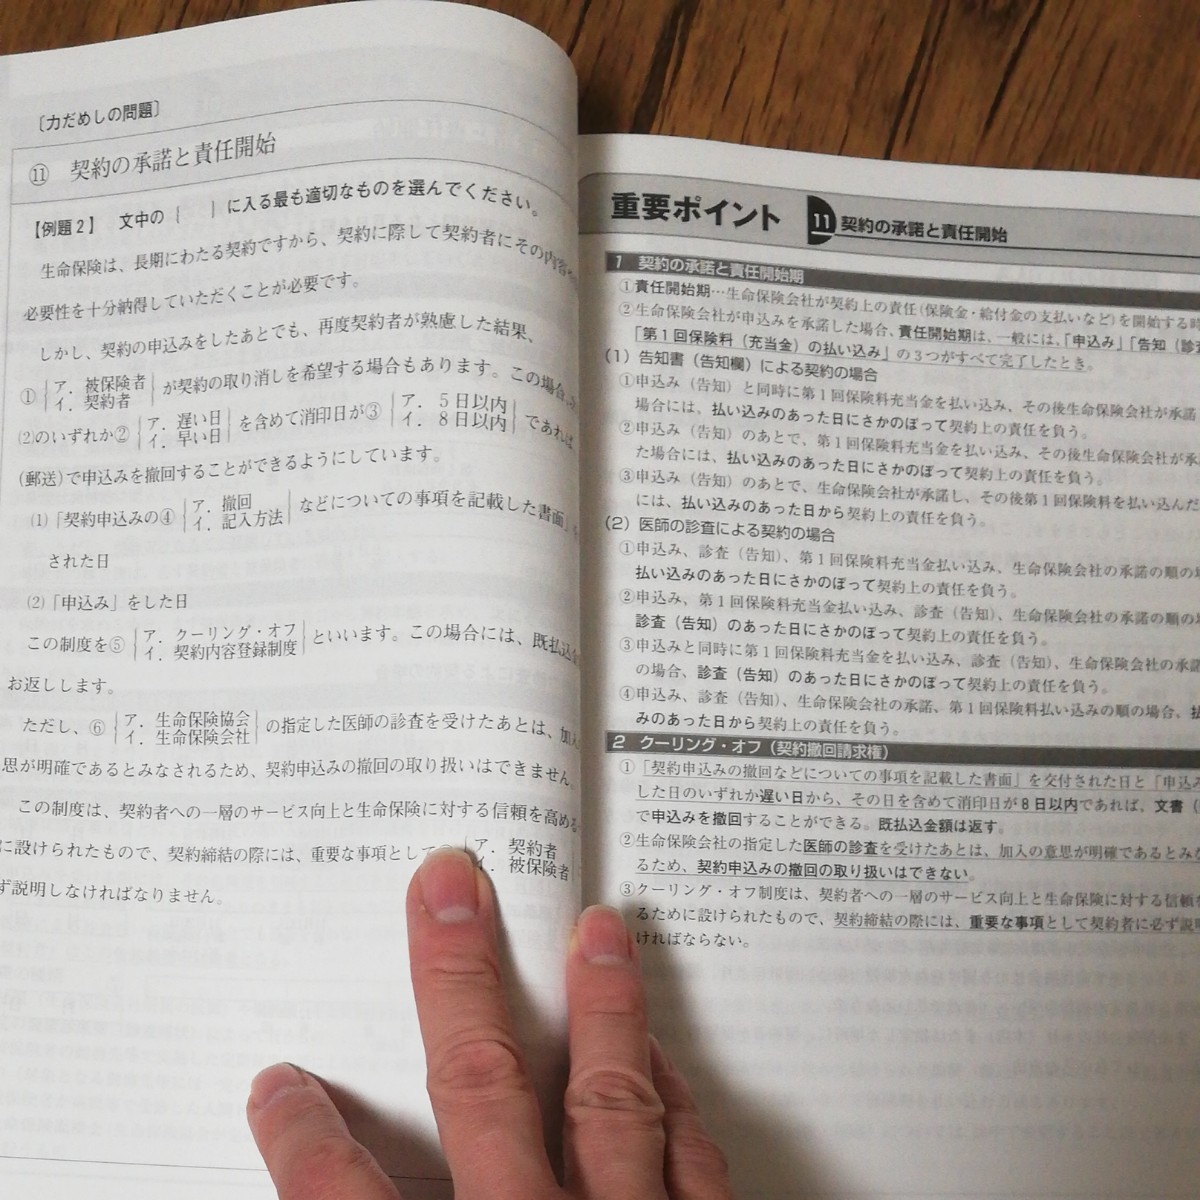 〔力だめしの問題〕
⑪ 契約の承諾と責任開始
【例題2】 文中の｛ ｝に入る最も適切なものを選んでください。
生命保険は、長期にわたる契約ですから、契約に際して契約者にその内容
必要性を十分納得していただくことが必要です。
しかし、契約の申込みをしたあとでも、再度契約者が熟慮した結果、
①｛ア．被保険者
イ．契約者｝が契約の取り消しを希望する場合もあります。この場合、
⑵のいずれか②｛ア．遅い日
イ．早い日｝を含めて消印日が③｛ア．5日以内
イ．8日以内｝であれば
(郵送)で申込みを撤回することができるようにしています。
⑴「契約申込みの④｛ア．撤回
イ．記入方法｝などについての事項を記載した書面」
された日
⑵「申込み」をした日
この制度を⑤｛ア．クーリング・オフ
イ．契約内容登録制度｝といいます。この場合には、既払込
お返しします。
ただし、⑥｛ア．生命保険協会
イ．生命保険会社｝の指定した医師の診査を受けたあとは、加入
思が明確であるとみなされるため、契約申込みの撤回の取り扱いはできません
この制度は、契約者への一層のサービス向上と生命保険に対する信頼を高める
に設けられたもので、契約締結の際には、重要な事項として ｛ア．契約者
イ．被保険者
ず説明しなければなりません。
重要ポイント 11 契約の承諾と責任開始
1 契約の承諾と責任開始期
①責任開始期…生命保険会社が契約上の責任(保険金・給付金の支払いなど)を開始する時
②生命保険会社が申込みを承諾した場合、責任開始期は、一般には、「申込み」「告知(診査
「第1回保険料（充当金）の払い込み」の3つがすべて完了したとき。
(1) 告知書（告知欄）による契約の場合
①申込み（告知）と同時に第1回保険料充当金を払い込み、その後生命保険会社が承諾
場合には、払い込みのあった日にさかのぼって契約上の責任を負う。
②申込み（告知）のあとで、第1回保険料充当金を払い込み、その後生命保険会社が承
た場合には、払い込みのあった日にさかのぼって契約上の責任を負う。
③申込み（告知）のあとで、生命保険会社が承諾し、その後第1回保険料を払い込んだ
には、払い込みのあった日から契約上の責任を負う。
(2) 医師の診査による契約の場合
①申込み、診査（告知）、第1回保険料充当金払い込み、生命保険会社の承諾の順の
払い込みのあった日にさかのぼって契約上の責任を負う。
②申込み、第1回保険料充当金払い込み、診査（告知）、生命保険会社の承諾の順の
診査（告知）のあった日にさかのぼって契約上の責任を負う。
③申込みと同時に第1回保険料充当金を払い込み、診査（告知）、生命保険会社の承諾
の場合、診査（告知）のあった日にさかのぼって契約上の責任を負う。
④申込み、診査（告知）、生命保険会社の承諾、第1回保険料払い込みの順の場合、払
みのあった日から契約上の責任を負う。
2 クーリング・オフ（契約撤回請求権）
①「契約申込みの撤回などについての事項を記載した書面」を交付された日と「申込み
した日のいずれか遅い日から、その日を含めて消印日が8日以内であれば、文書（
で申込みを撤回することができる。既払込金額は返す。
②生命保険会社の指定した医師の診査を受けたあとは、加入の意思が明確であるとみな
るため、契約申込みの撤回の取り扱いはできない。
③クーリング・オフ制度は、契約者への一層のサービス向上と生命保険に対する信頼
るために設けられたもので、契約締結の際には、重要な事項として契約者に必ず説明
ければならない。